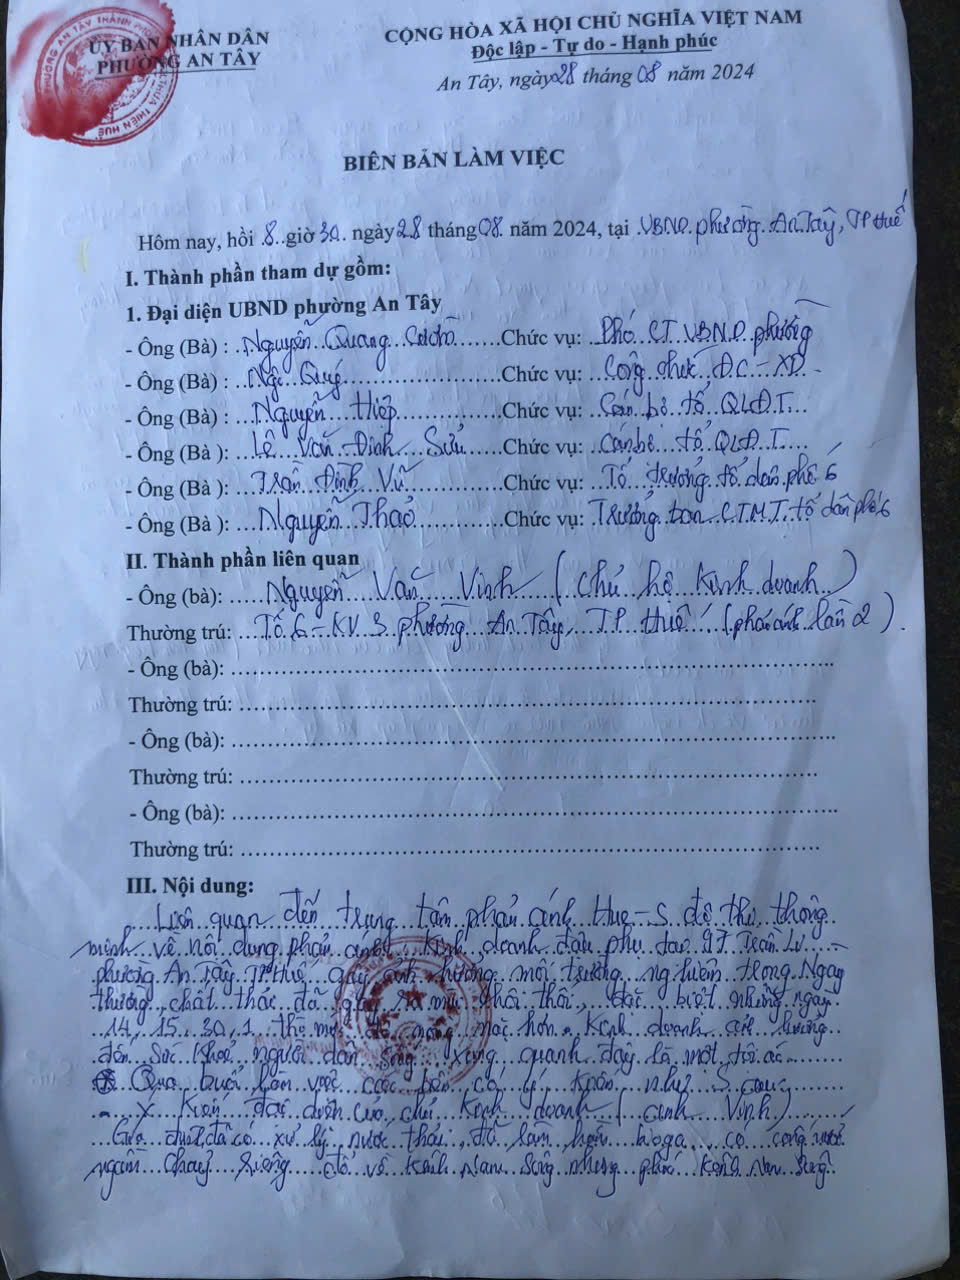 ỦY BAN NHÂN DÂN
PHƯỜNG AN TÂY
CỘNG HÒA XÃ HỘI CHỦ NGHĨA VIỆT NAM
Độc lập - Tự do - Hạnh phúc
An Tây, ngày 28 tháng 08 năm 2024
BIÊN BẢN LÀM VIỆC
Hôm nay, hồi 8 giờ 30 ngày 28 tháng 08 năm 2024, tại UBND phường An Tây, TP Huế
I. Thành phần tham dự gồm:
1. Đại diện UBND phường An Tây
- Ông (Bà) : Nguyễn Quang Chức vụ: Phó CT UBND phường
- Ông (Bà) : Ngô Quý Chức vụ: Công chức ĐC - XD
- Ông (Bà) : Nguyễn Hiệp Chức vụ: Cán bộ tổ QLĐT
- Ông (Bà ): Lê Văn Đình Sửu Chức vụ: Cán bộ tổ QLĐT
- Ông (Bà ): Trần Đình Vũ Chức vụ: Tổ trưởng tổ dân phố 6
- Ông (Bà ): Nguyễn Thảo Chức vụ: Trưởng ban CTMT tổ dân phố 6
II. Thành phần liên quan
- Ông (bà): Nguyễn Văn Vinh (chủ hộ kinh doanh)
Thường trú: Tổ 6 - KV 3 phường An Tây, TP Huế (phản ánh lần 2).
- Ông (bà):
Thường trú:
- Ông (bà):
Thường trú:
- Ông (bà):
Thường trú:
III. Nội dung:
Liên quan đến trung tâm phản ánh Hue-S đô thị thông
minh về nội dung phản ánh: Kinh doanh đậu phụ tại 97 Trần Lư
phường An Tây TP Huế gây ảnh hưởng môi trường nghiêm trọng. Ngày
thường chất thải đã gây ra mùi hôi thối, đặc biệt những ngày
14, 15, 30, 1 thì mùi nặng hơn. Kinh doanh ảnh hưởng
đến sức khoẻ người dân sống xung quanh đây là một tội ác
Qua buổi làm việc các bên có ý kiến như sau:
Ý kiến đại diện của chủ kinh doanh (anh Vinh)
Gia đình đã có xử lý nước thải, đã làm hầm bioga, có cống nước
ngầm chạy riêng đổ về kênh Nam Sông nhưng phía Kênh Nam Sông